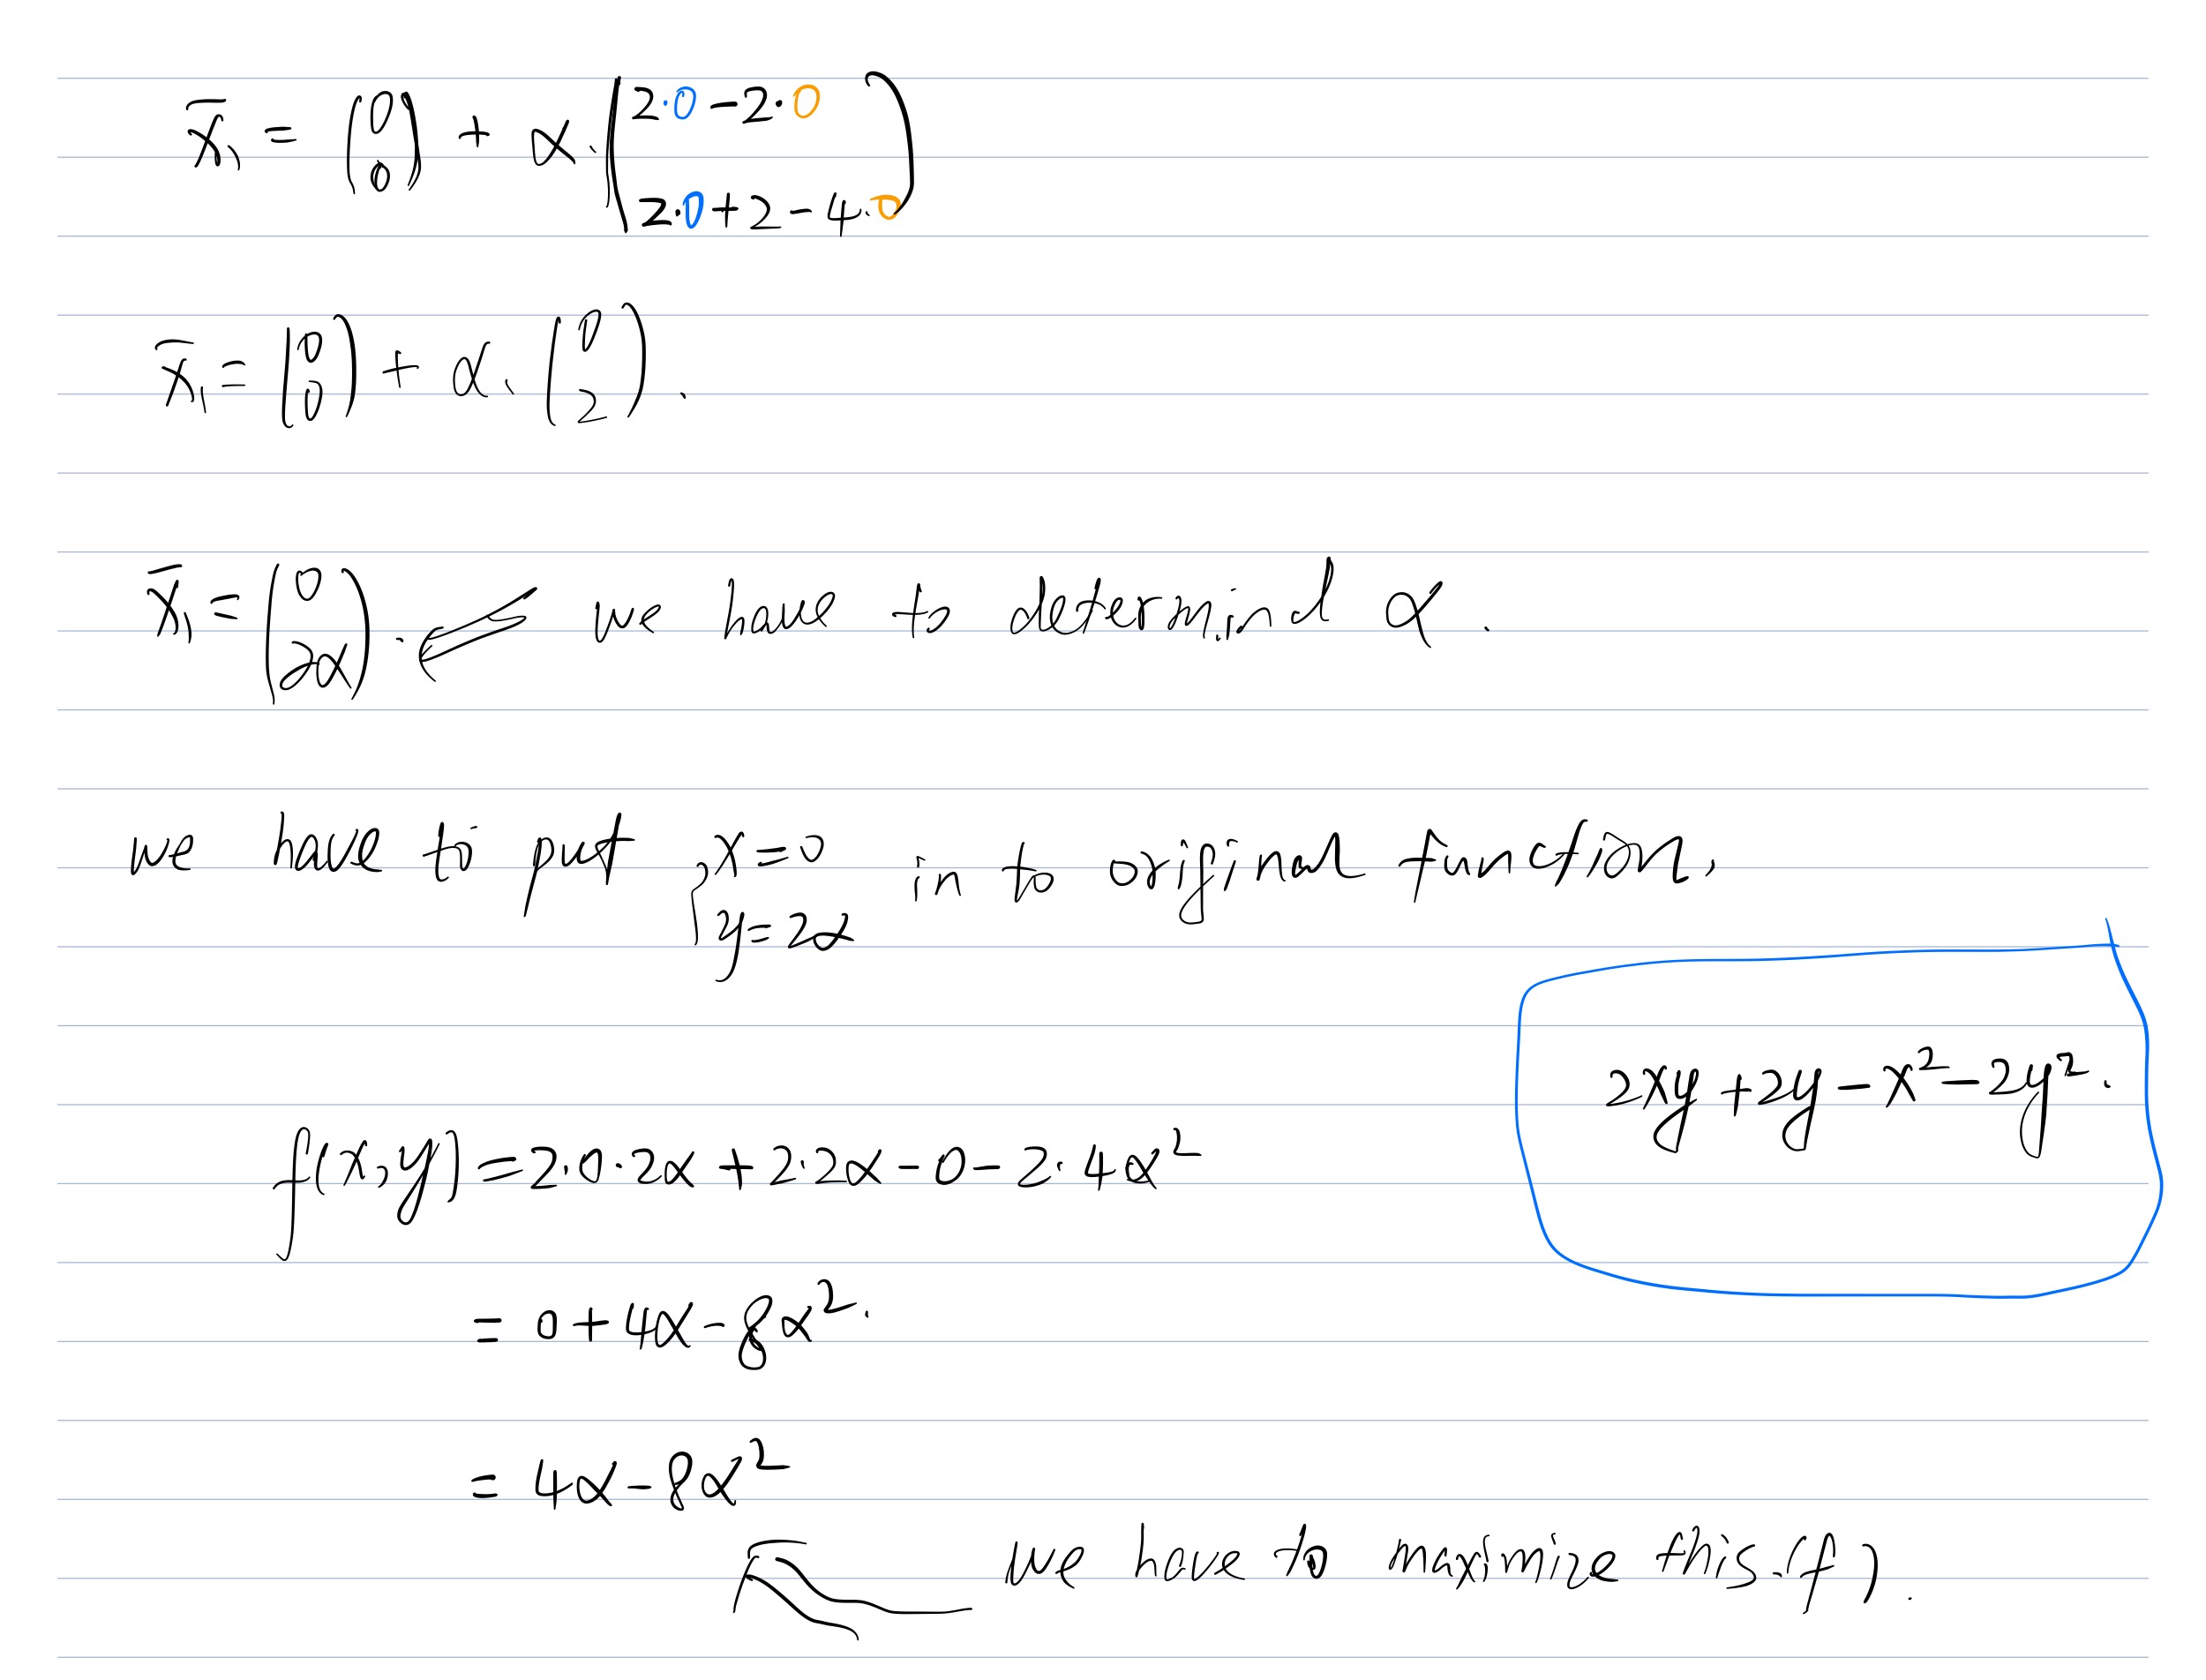 x̄₁ = (0 0) + α·(2·0-2·0 2·0+2-4·0)
x̄₁ = (0 0) + α·(0 2).
x̄₁ = (0 2α). ⇐ we have to determind α.
we have to put {x=0 y=2α in to original function,
2xy+2y-x²-2y².
f(x,y)=2·0·2α+2·2α-0-2·4α²
= 0+4α-8α².
= 4α-8α²
we have to maximize this (f).